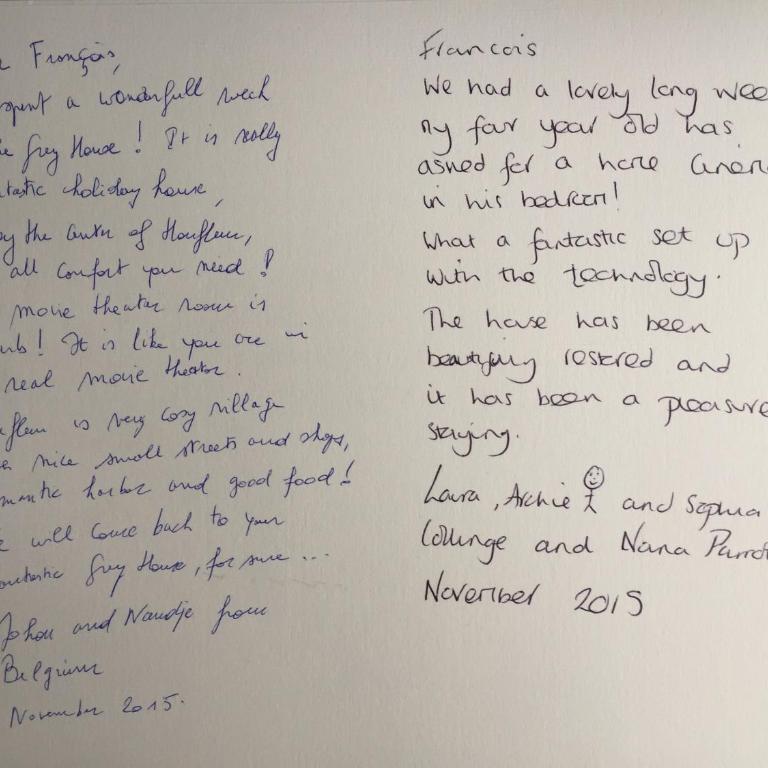 François,
spent a wonderfull week
Grey House! It is really
tastic holiday house,
by the center of Honfleur,
all confort you need!
movie theater room is
It is like you are in
real movie theater.
is very cosy village
nice small streets and shops,
mantic harbor and good food!
will come back to your
Grey House, for sure ...
Johan and Nandje from
Belgium
November 2015.
Francois
We had a lovely long wee
My four year old has
asked for a home
in his bedroom!
What a fantastic set up
with the technology.
The house has been
beautifully restored and
it has been a pleasure
staying.
Laura, Archie and Sophia
Collinge and Nana
November 2015